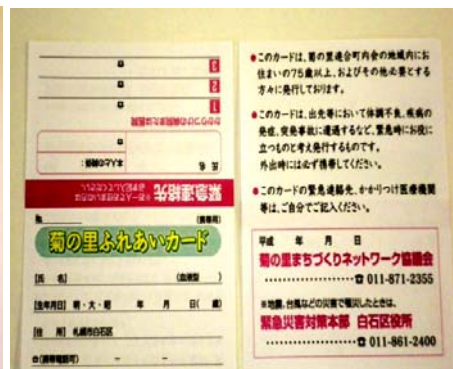 3 ☎
2 ☎
1 ☎
かかりつけの病院または医院
☎
氏 名 本人との関係:
緊急連絡先 ※お一人でお住まいの方は
必ず記入してください。
№ (携帯用)
菊の里ふれあいカード
[氏 名] (血液型 )
[生年月日] 明・大・昭 年 月 日( 歳)
[住 所] 札幌市白石区
☎(携帯電話可) － －
●このカードは、菊の里連合町内会の地域内にお
住まいの75歳以上、およびその他必要とする
方々に発行しております。
●このカードは、出先等において体調不良、疾病の
発症、突発事故に遭遇するなど、緊急時にお役に
立つものと考え発行するものです。
外出時には必ず携帯してください。
●このカードの緊急連絡先、かかりつけ医療機関
等は、ご自分でご記入ください。
平成 年 月 日
菊の里まちづくりネットワーク協議会
☎ 011-871-2355
※地震、台風などの災害で罹災したときは、
緊急災害対策本部 白石区役所
☎ 011-861-2400